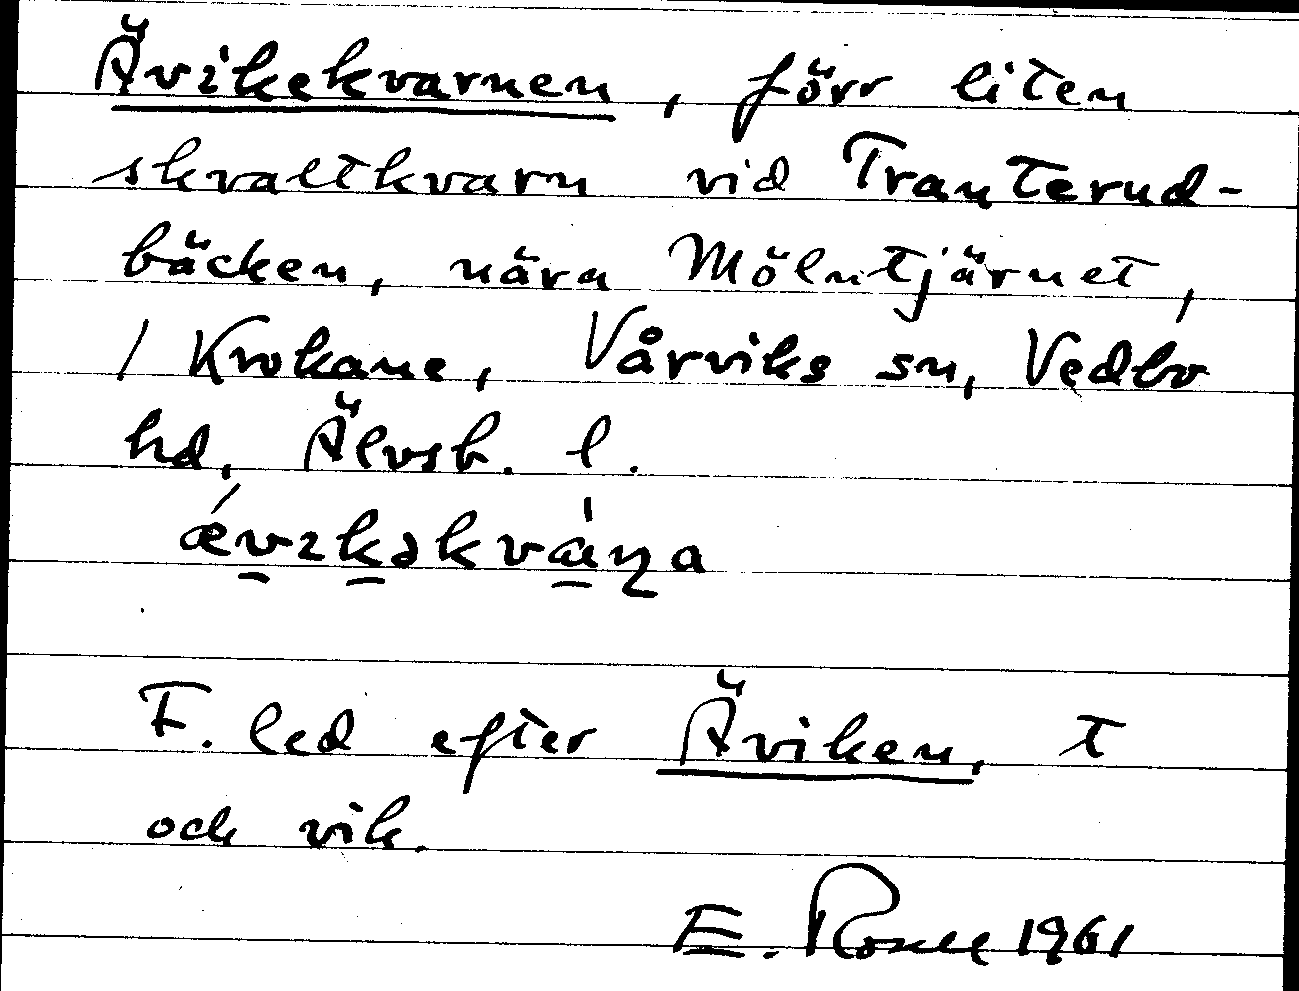 Ävikekvarnen, förr liten
skvaltkvarn vid Tranterud-
bäcken, nära Mölntjärnet,
/ Krokane, Vårviks sn, Vedbo
hd, Älvsb. l.
F. led efter Äviken, t
och vik.
E. 1961